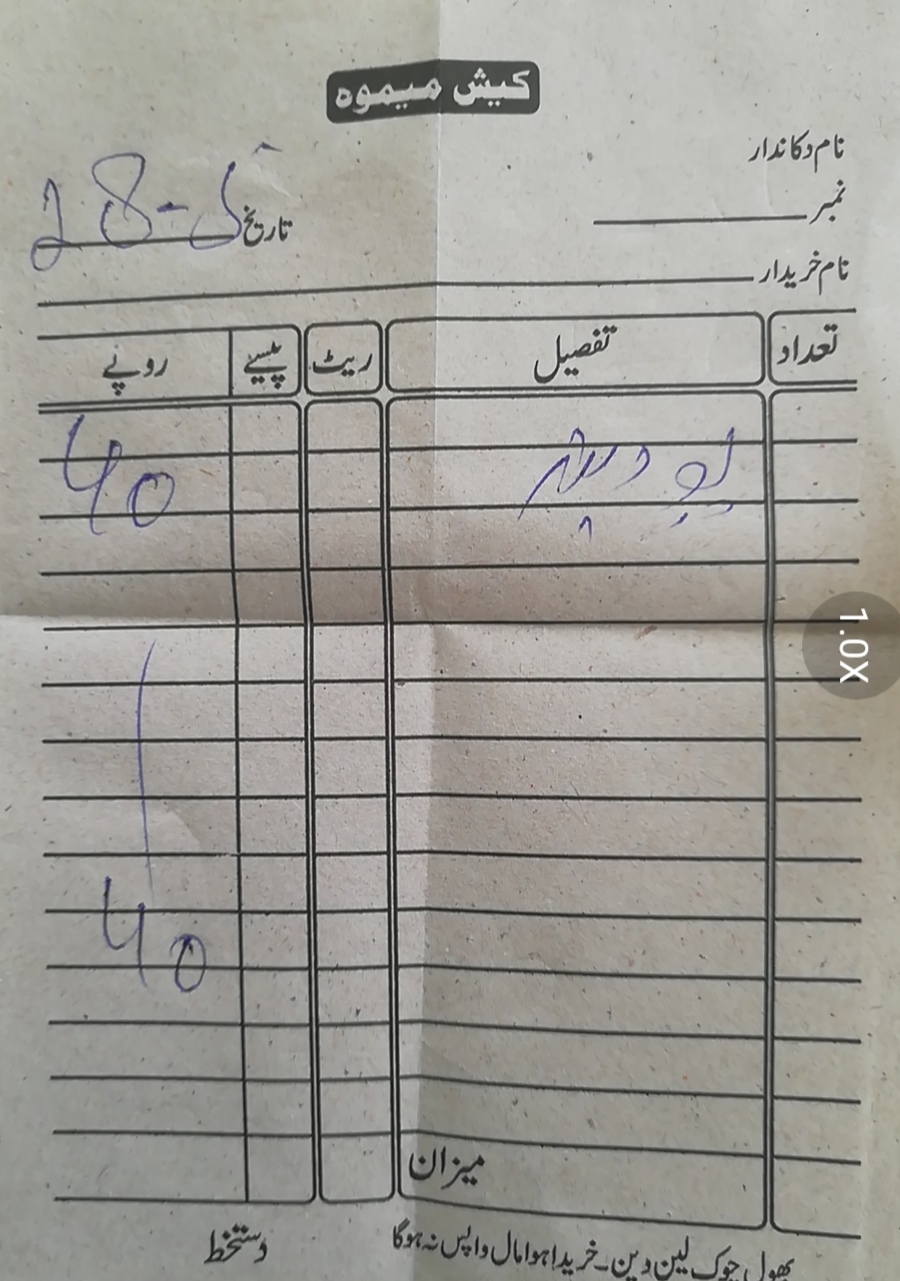 کیش میموہ
نام دکاندار
نمبر
تاریخ 28-5
نام خریدار
تعداد تفصیل ریٹ پیسے روپے
پودینہ 40
40
میزان
بھول چوک لین دین۔خریدا ہوا مال واپس نہ ہوگا
دستخط
1.0X